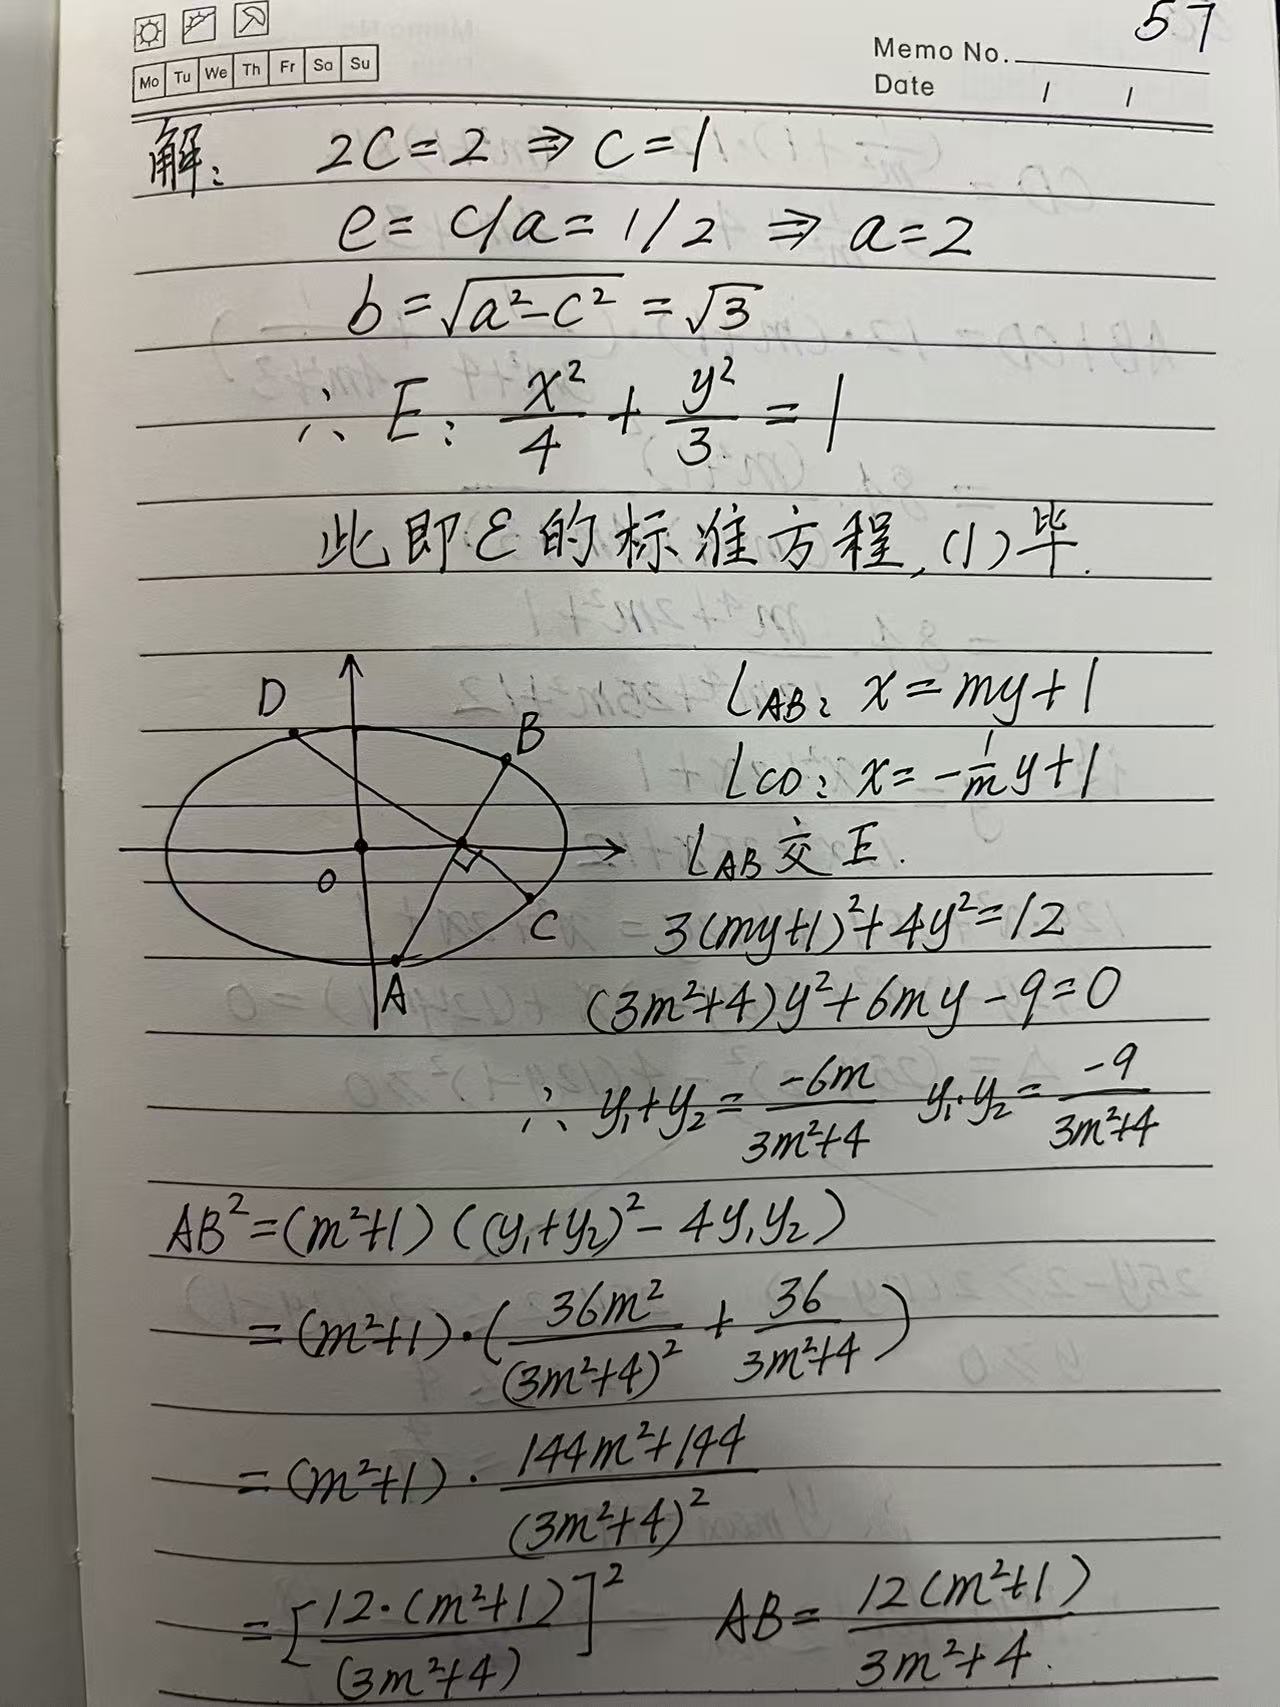 57
Memo No.
Mo Tu We Th Fr Sa Su
Date / /
解: 2C=2 ⇒ C=1
e=c/a=1/2 ⇒ a=2
b=√(a²-c²)=√3
∴ E: x²/4 + y²/3 = 1
此即ε的标准方程,(1)毕.
D
B
O
C
A
L_AB: x=my+1
L_CD: x=-1/m y+1
L_AB交E.
3(my+1)²+4y²=12
(3m²+4)y²+6my-9=0
∴ y₁+y₂= -6m/(3m²+4) y₁·y₂= -9/(3m²+4)
AB²=(m²+1)((y₁+y₂)²-4y₁y₂)
=(m²+1)·(36m²/(3m²+4)² + 36/(3m²+4))
=(m²+1)·(144m²+144)/(3m²+4)²
=[12·(m²+1)/(3m²+4)]² AB= 12(m²+1)/(3m²+4).